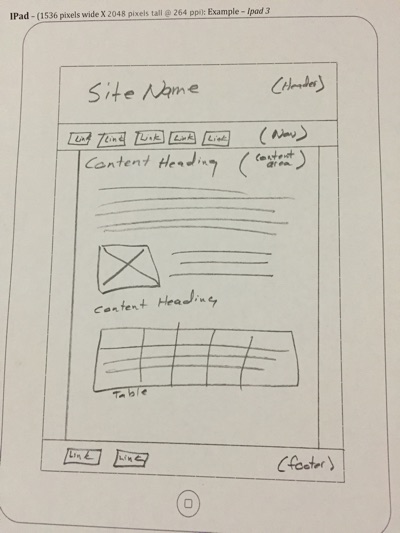 IPad - (1536 pixels wide X 2048 pixels tall @ 264 ppi): Example – Ipad 3
Site Name (Header)
Link Link Link Link Link (Nav)
Content Heading (content area)
Content Heading
Table
Link Link (footer)